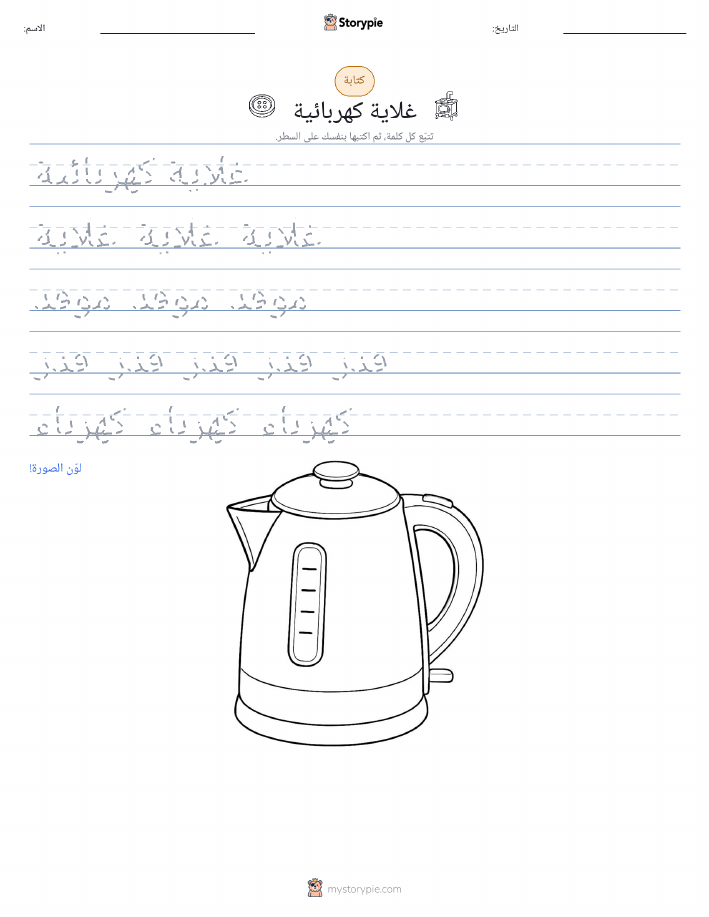 الاسم:
Storypie
التاريخ:
كتابة
غلاية كهربائية
تتبّع كل كلمة، ثم اكتبها بنفسك على السطر.
غلاية كهربائية
غلاية غلاية غلاية
موقد موقد موقد
قدر قدر قدر قدر قدر
كهرباء كهرباء كهرباء
لوّن الصورة!
mystorypie.com